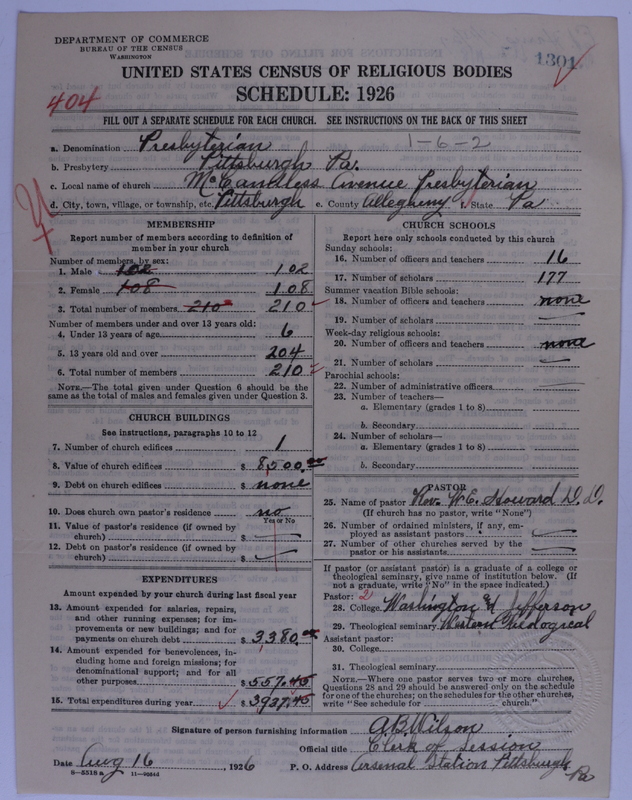 DEPARTMENT OF COMMERCE
BUREAU OF THE CENSUS
WASHINGTON
1301
UNITED STATES CENSUS OF RELIGIOUS BODIES
SCHEDULE: 1926
404
FILL OUT A SEPARATE SCHEDULE FOR EACH CHURCH. SEE INSTRUCTIONS ON THE BACK OF THIS SHEET
a. Denomination Presbyterian 1-6-2
b. Presbytery Pittsburgh Pa.
c. Local name of church McCandless Avenue Presbyterian
d. City, town, village, or township, etc. Pittsburgh e. County Allegheny f. State Pa
MEMBERSHIP
Report number of members according to definition of
member in your church
Number of members, by sex:
1. Male 102 102
2. Female 108 108
3. Total number of members 210 210
Number of members under and over 13 years old:
4. Under 13 years of age 6
5. 13 years old and over 204
6. Total number of members 210
NOTE.—The total given under Question 6 should be
same as the total of males and females given under Question 3.
CHURCH BUILDINGS
See instructions, paragraphs 10 to 12
7. Number of church edifices 1
8. Value of church edifices $ 8,500.00
9. Debt on church edifices $ none
10. Does church own pastor's residence? no
Yes or No
11. Value of pastor's residence (if owned by
church) $
12. Debt on pastor's residence (if owned by
church) $
EXPENDITURES
Amount expended by your church during last fiscal year
13. Amount expended for salaries, repairs,
and other running expenses; for im-
provements or new buildings; and for
payments on church debt $ 3380.00
14. Amount expended for benevolences, in-
cluding home and foreign missions; for
denominational support; and for all
other purposes $ 557.45
15. Total expenditures during year $ 3937.45
CHURCH SCHOOLS
Report here only schools conducted by this church
Sunday schools:
16. Number of officers and teachers 16
17. Number of scholars 177
Summer vacation Bible schools:
18. Number of officers and teachers none
19. Number of scholars
Week-day religious schools:
20. Number of officers and teachers none
21. Number of scholars
Parochial schools:
22. Number of administrative officers
23. Number of teachers—
a. Elementary (grades 1 to 8)
b. Secondary
24. Number of scholars—
a. Elementary (grades 1 to 8)
b. Secondary
PASTOR
25. Name of pastor Rev. W. E. Howard D.D.
(If church has no pastor, write "None")
26. Number of ordained ministers, if any, em-
ployed as assistant pastors
27. Number of other churches served by the
pastor or his assistants
If pastor (or assistant pastor) is a graduate of a college or
theological seminary, give name of institution below. (If
not a graduate, write "No" in the space indicated.)
Pastor: 2
28. College Washington & Jefferson
29. Theological seminary Western Theological
Assistant pastor:
30. College
31. Theological seminary
NOTE.—Where one pastor serves two or more churches,
Questions 28 and 29 should be answered only on the schedule
for one of the churches; on the schedules for the other churches,
write "See schedule for church."
Signature of person furnishing information A.B. Wilson
Official title Clerk of Session
Date Aug 16, 1926 P. O. Address Arsenal Station Pittsburgh
Pa
8—5518a 11—9624d